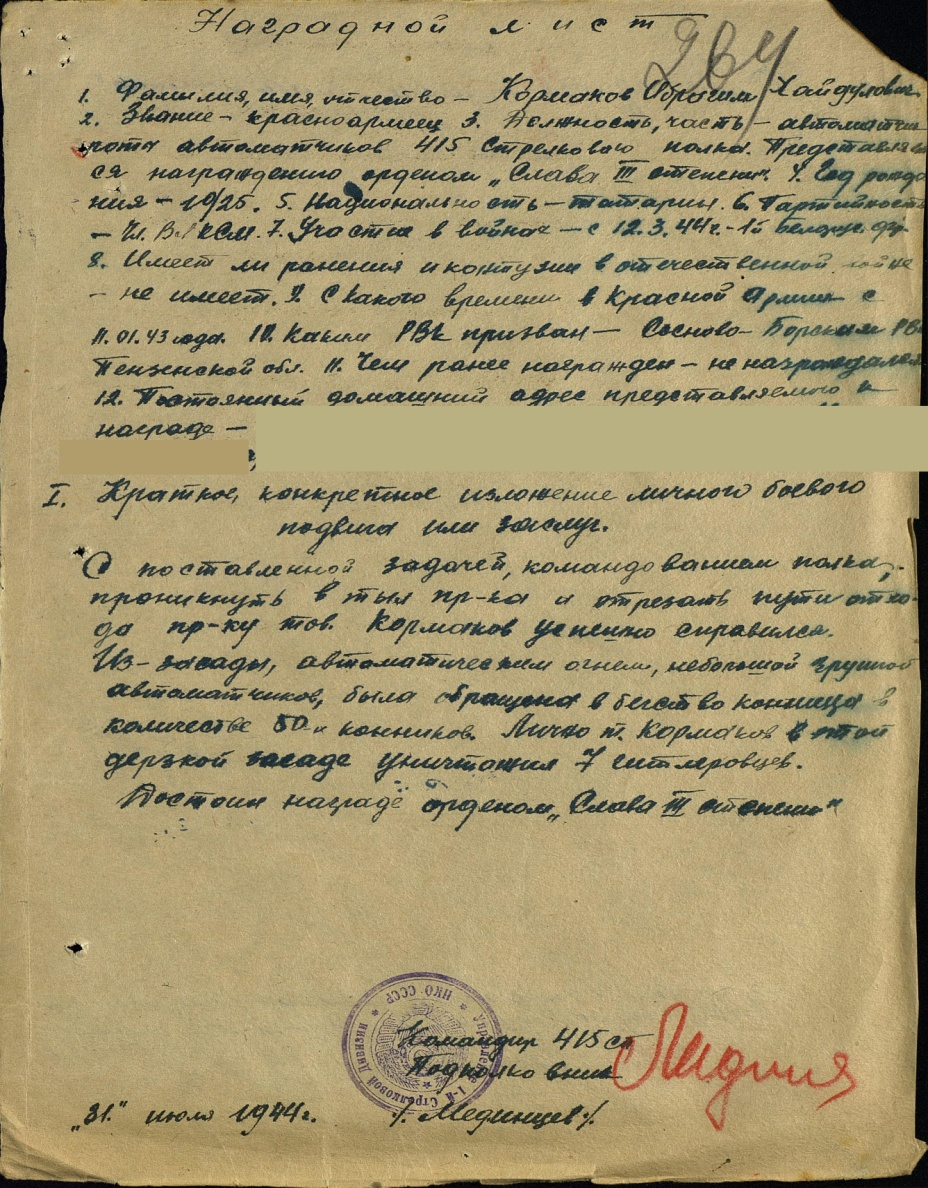 Наградной лист
264
1. Фамилия, имя, отчество – Кормаков Ибрагим Хайдулович
2. Звание – красноармеец 3. Должность, часть – автоматчик
рота автоматчиков 415 Стрелкового полка. Представляет
ся награждению орденом „Слава III степени". 4. Год рожде
ния – 1925. 5. Национальность – татарин. 6. Партийность
– Чл. ВЛКСМ. 7. Участие в войнах – с 12.3.44г. – 1й Белорус. фр.
8. Имеет ли ранения и контузии в отечественной войне
– не имеет. 9. С какого времени в Красной Армии с
11.01.43 года. 10. Каким РВК призван – Сосново-Борским РВК
Пензенской обл. 11. Чем ранее награжден – не награждался
12. Постоянный домашний адрес представляемого к
награде –
I. Краткое, конкретное изложение личного боевого
подвига или заслуг.
С поставленной задачей, командованием полка,
проникнуть в тыл пр-ка и отрезать пути отхо-
да пр-ку тов. Кормаков успешно справился.
Из-засады, автоматическим огнем, небольшой группой
автоматчиков, была обращена в бегство конница в
количестве 50и конников. Лично т. Кормаков в этой
дерзкой засаде уничтожил 7 гитлеровцев.
Достоин награде орденом „Слава III степени"
НКО СССР * Управление 1-й Стрелковой Дивизии *
Командир 415 сп
Подполковник
/Мединцев/.
„31." июля 1944г.